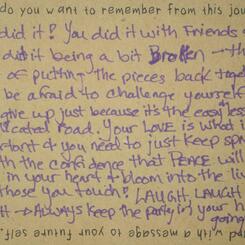 do you want to remember from this jou
did it! You did it with Friends
did it being a bit Broken → th
of putting the pieces back toge
be afraid to challenge yourself
give up just because it's the easy
cated road. Your LOVE is what
tant & you need to just keep spr
th the confidence that PEACE will
in your heart & bloom into the liv
those you touch! LAUGH, LAUGH
H → Always keep the party in your h
going
up with a message to your future self.